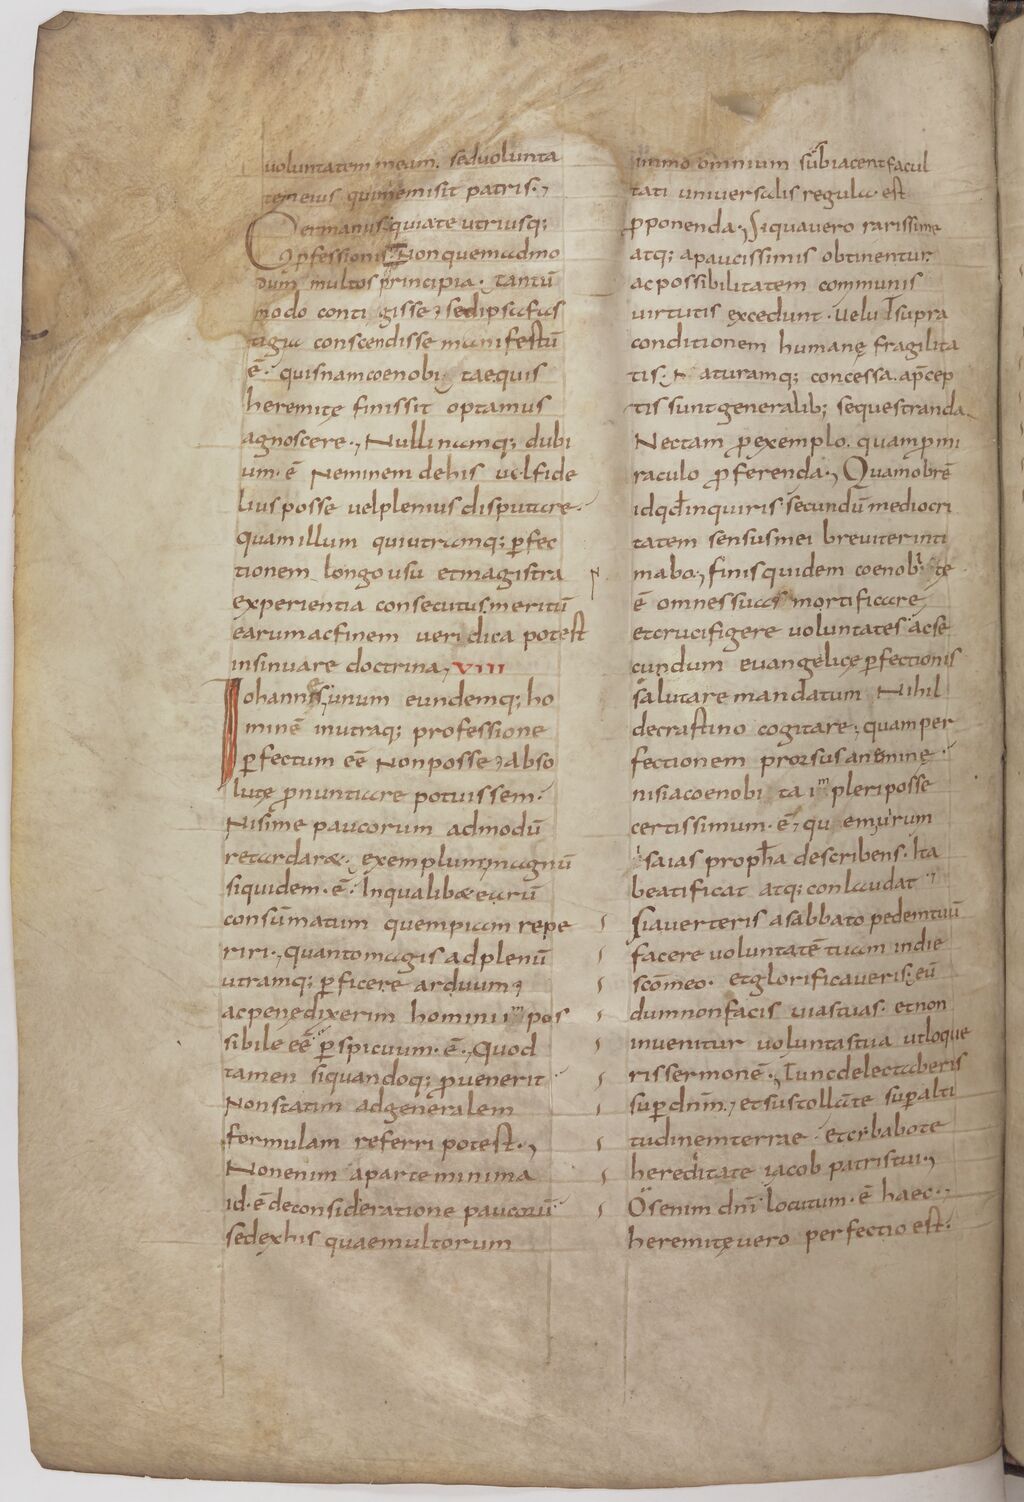 voluntatem meam. sed volunta
tem eius qui me misit patris.,
Germanus. quia te utriusq;
professionis. Non quemadmo
dum multos principia. tantū
modo conti gisse, sed ipsa fas
tigia conscendisse manifestū
ē. quis nam coenobi tae quis
heremitę finis sit optamus
agnoscere., Nulli namq; dubi
um. ē Neminem de his vel fide
lius posse vel plenius disputare.
quam illum qui utramq; ꝑfec
tionem longo usu et magistra
experientia consecutus. meritū
earum ac finem veri dica potest
insinuare doctrina, VIII
Iohannis, unum eundemq; ho
minē in utraq; professione
ꝑfectum eē Non posse, abso
lutę ꝓnuntiare potuissem.
Nisi me paucorum admodū
retardar&. exemplum, magnū
siquidem. ē. In qualib& earū
consūmatum quempiam repe
riri., quanto magis ad plenū
utramq; ꝑficere arduum,
ac pene dixerim homini impos
sibile eē ꝑspicuum. ē., Quod
tamen si quandoq; ꝓvenerit
Non statim ad generalem
formulam referri potest.,
Non enim a parte minima
id. ē de consideratione paucorū
sed ex his quae multorum
immo omnium subiacent facul
tati universalis regula. est
ꝓponenda., Si qua vero rarissime
atq; a paucissimis obtinentur.
ac possibilitatem communis
virtutis excedunt. velut supra
conditionem humanę fragilita
tis. Naturamq; concessa. a p̄cep
tis sunt generalib; sequestranda
Nec tam ꝓ exemplo. quam ꝓ mi
raculo ꝓferenda., Quam obrē
id qd inquiris secundū mediocri
tatem sensus mei breviter inti
mabo., finis quidem coenobi tę
ē omnes suas mortificare,
et crucifigere voluntates ac se
cundum evangelicę ꝑfectionis
salutare mandatum Nihil
de crastino cogitare., quam per
fectionem prorsus a nemine.
nisi a coenobi ta impleri posse
certissimum. ē, quem virum
isaias propha describens. Ita
beatificat atq; conlaudat,
Si averteris a sabbato pedem tuū
facere voluntatē tuam in die
scō meo. et glorificaveris. eū
dum non facis vias tuas. et non
invenitur voluntas tua ut loque
ris sermonē., Tunc delectaberis
suꝑ dnm̄., et sustollā te suꝑ alti
tudinem terrae. et cibabo te
hereditate iacob patris tui.,
Os enim dni locutum. ē haec.,
heremitę vero perfectio est.